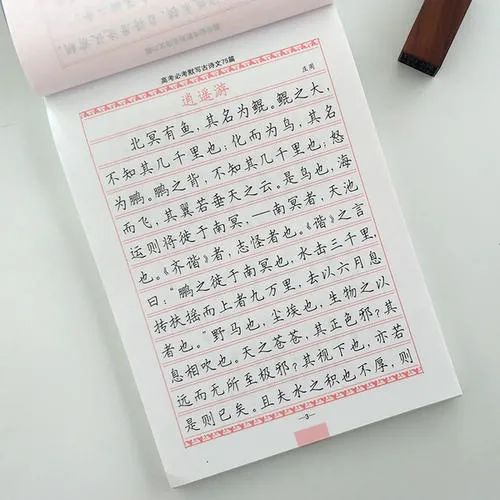 高考必考默写古诗文75篇
逍遥游
庄周
北冥有鱼，其名为鲲。鲲之大，
不知其几千里也；化而为鸟，其名
为鹏。鹏之背，不知其几千里也；怒
而飞，其翼若垂天之云。是鸟也，海
运则将徙于南冥，—南冥者，天池
也。《齐谐》者，志怪者也。《谐》之言
曰：“鹏之徙于南冥也，水击三千里，
抟扶摇而上者九万里，去以六月息
者也。”野马也，尘埃也，生物之以
息相吹也。天之苍苍，其正色邪？其
远而无所至极邪？其视下也，亦若
是则已矣。且夫水之积也不厚，则
—3—